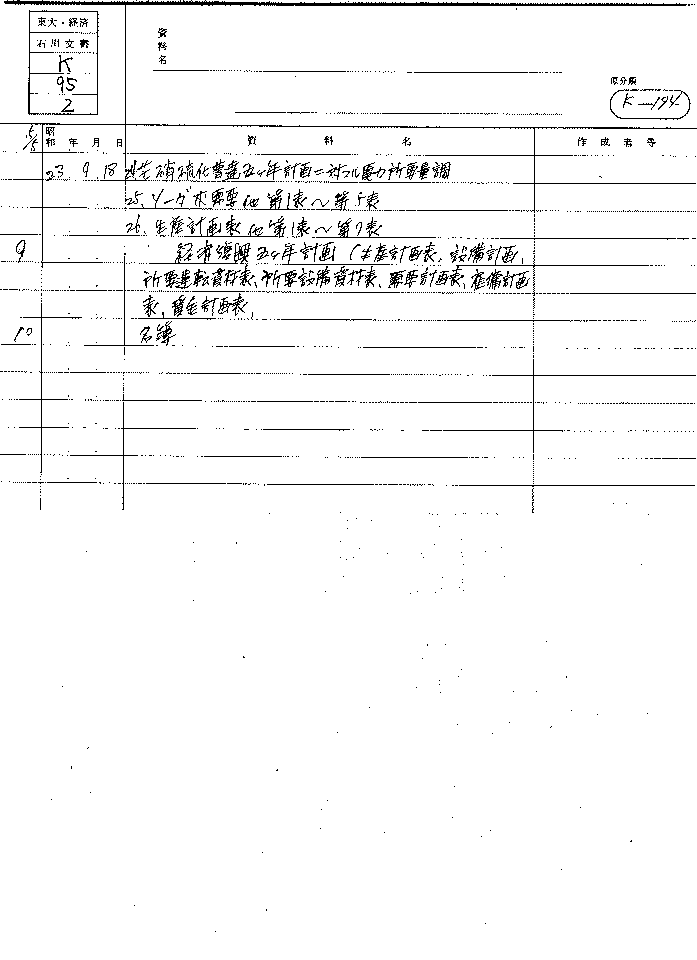 東大・経済
石川文書
K
95
2
資料名
原分類
K-194
5/5
昭和 年 月 日
資料名
作成者等
23 9 18
芒硝硫化曹達五ヶ年計画ニ対スル電力所要量調
25. ソーダ灰需要他第1表〜第5表
26. 生産計画表他第1表〜第7表
9 経済復興五ヶ年計画(生産計画表、設備計画、
所要運転資材表、所要設備資材表、需要計画表、整備計画
表、資金計画表、
10 名簿